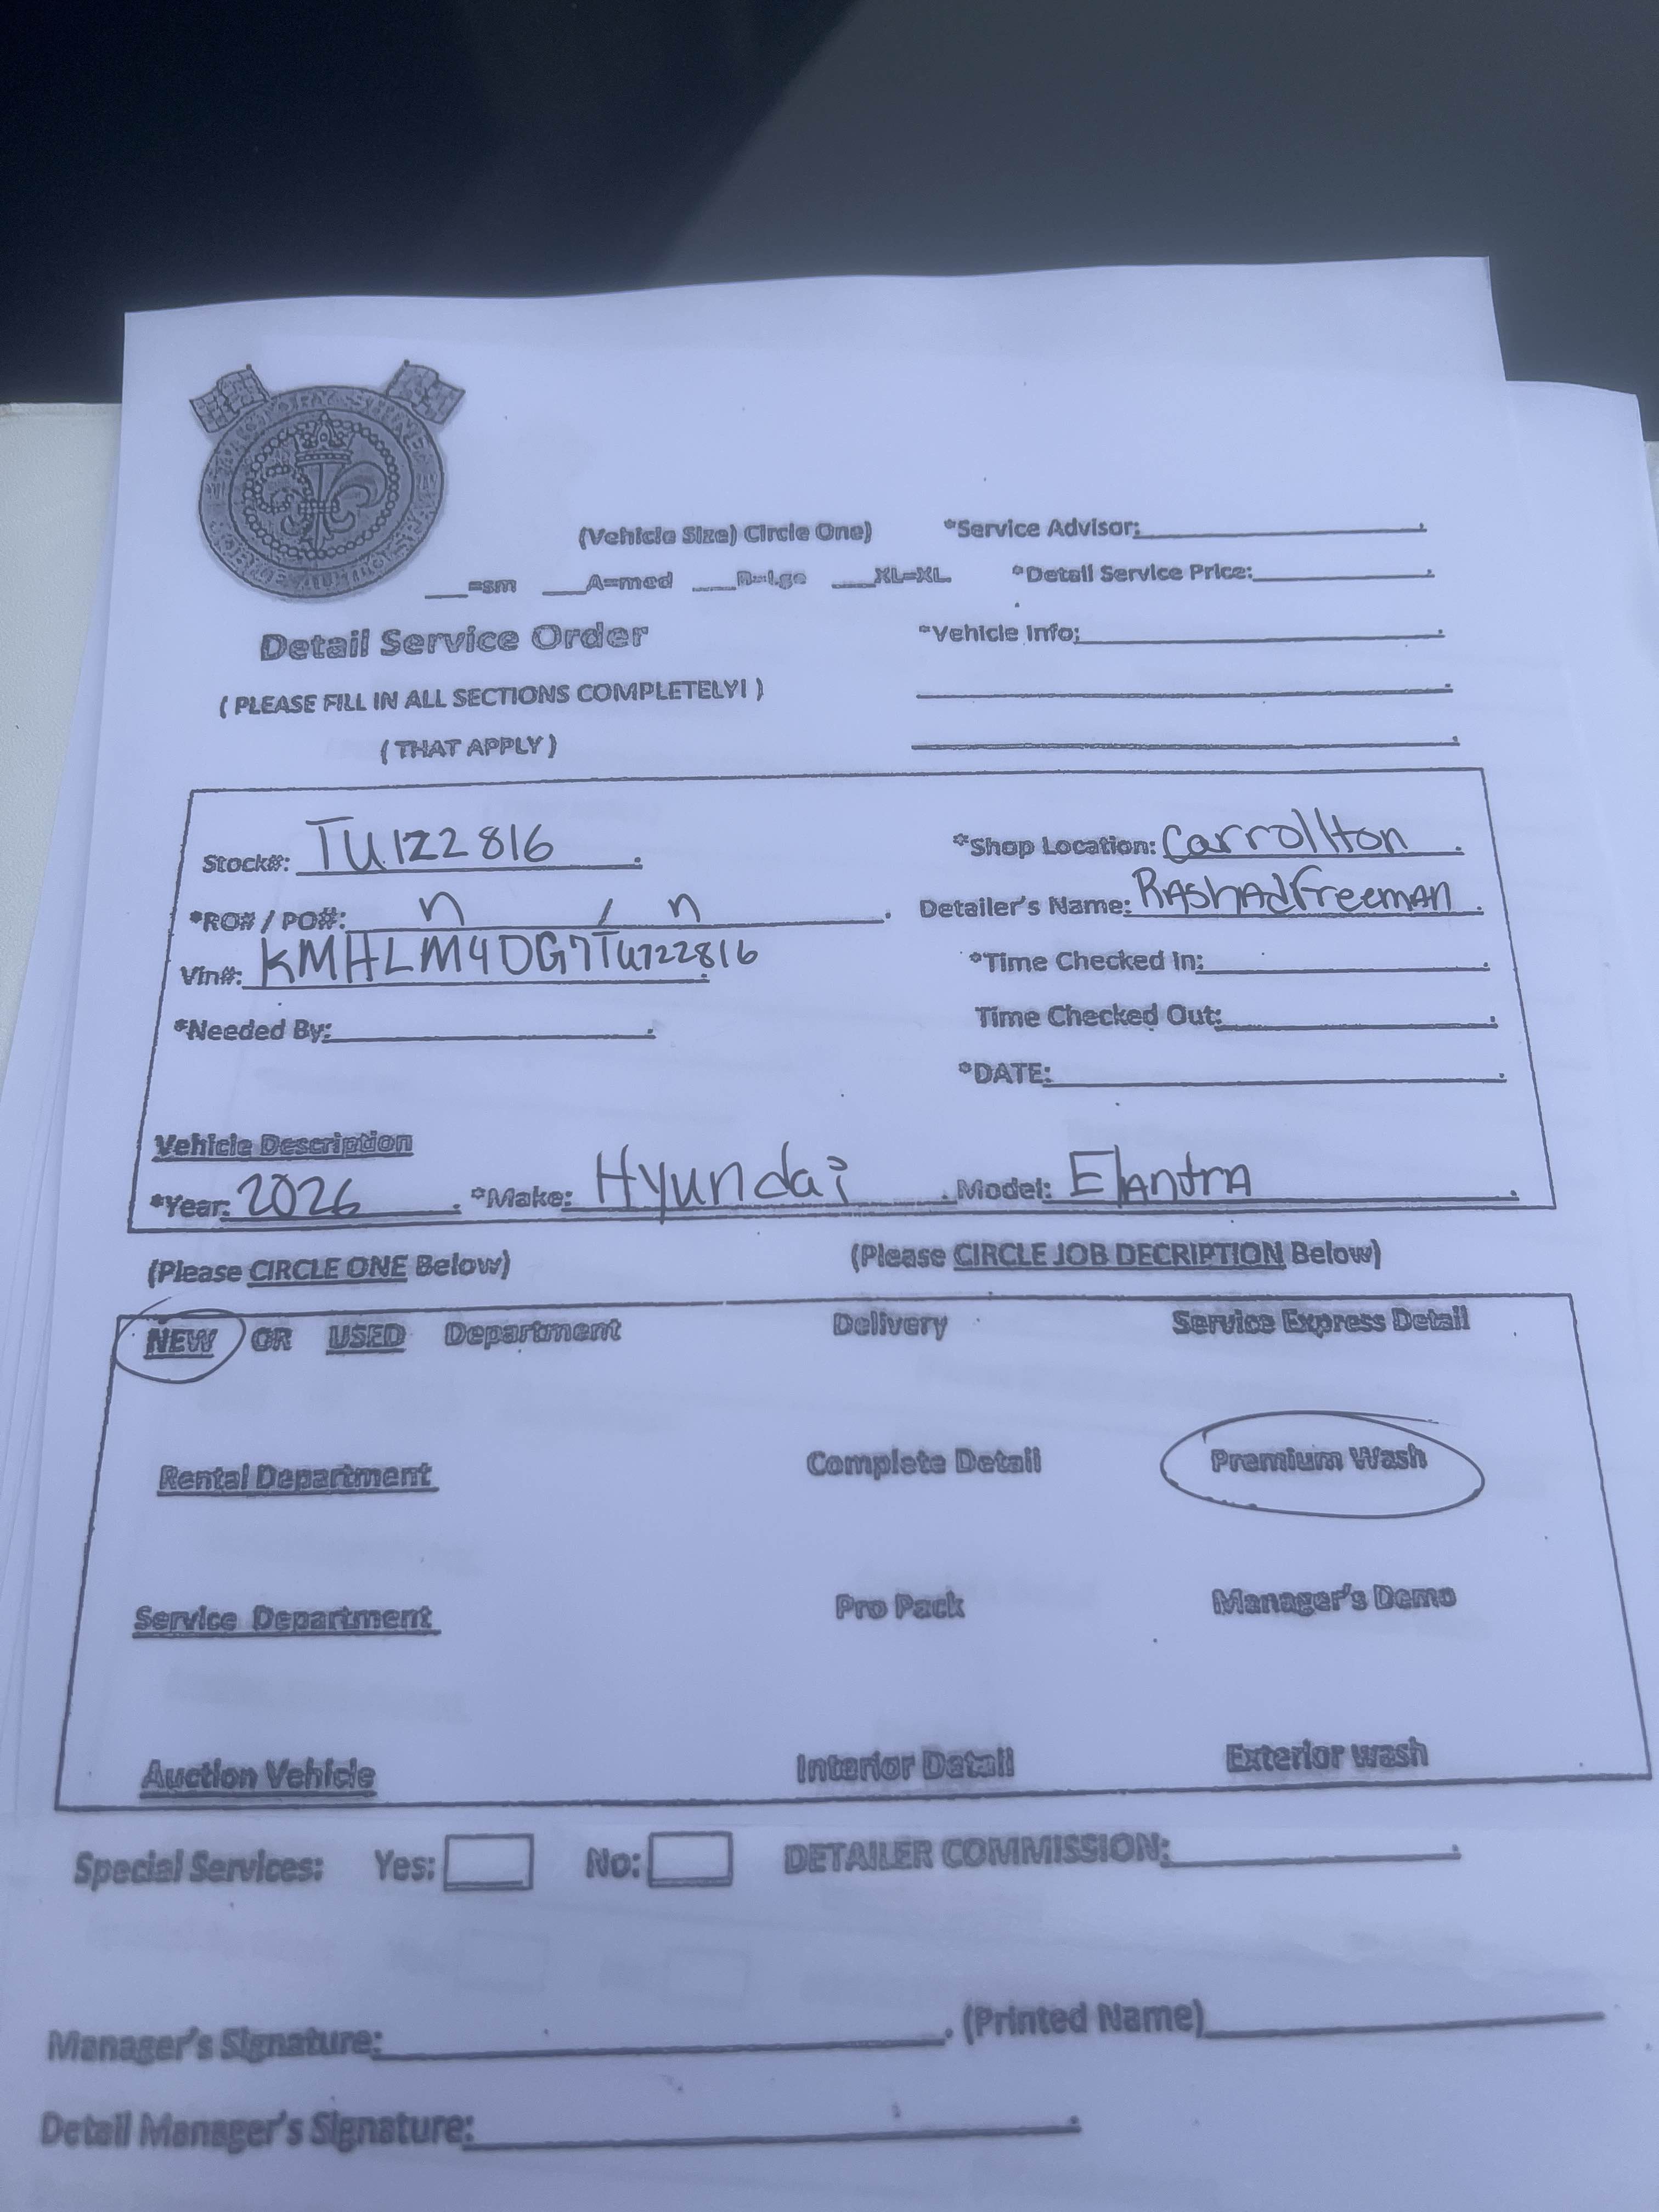 (Vehicle Size) Circle One)
*Service Advisor:
___=sm ___A=med ___B=Lge ___XL=XL
*Detail Service Price:
Detail Service Order
*Vehicle Info:
( PLEASE FILL IN ALL SECTIONS COMPLETELY! )
( THAT APPLY )
Stock#: TU122816
*Shop Location: Carrollton
*RO# / PO#: n / n
Detailer's Name: RAShAd Freeman
Vin#: KMHLM4DG7TU122816
*Time Checked In:
*Needed By:
Time Checked Out:
*DATE:
Vehicle Description
*Year: 2026 . *Make: Hyundai . Model: ElAntrA
(Please CIRCLE ONE Below)
(Please CIRCLE JOB DECRIPTION Below)
NEW OR USED Department
Delivery
Service Express Detail
Rental Department
Complete Detail
Premium Wash
Service Department
Pro Pack
Manager's Demo
Auction Vehicle
Interior Detail
Exterior wash
Special Services: Yes: No: DETAILER COMMISSION:
Manager's Signature: . (Printed Name)
Detail Manager's Signature: